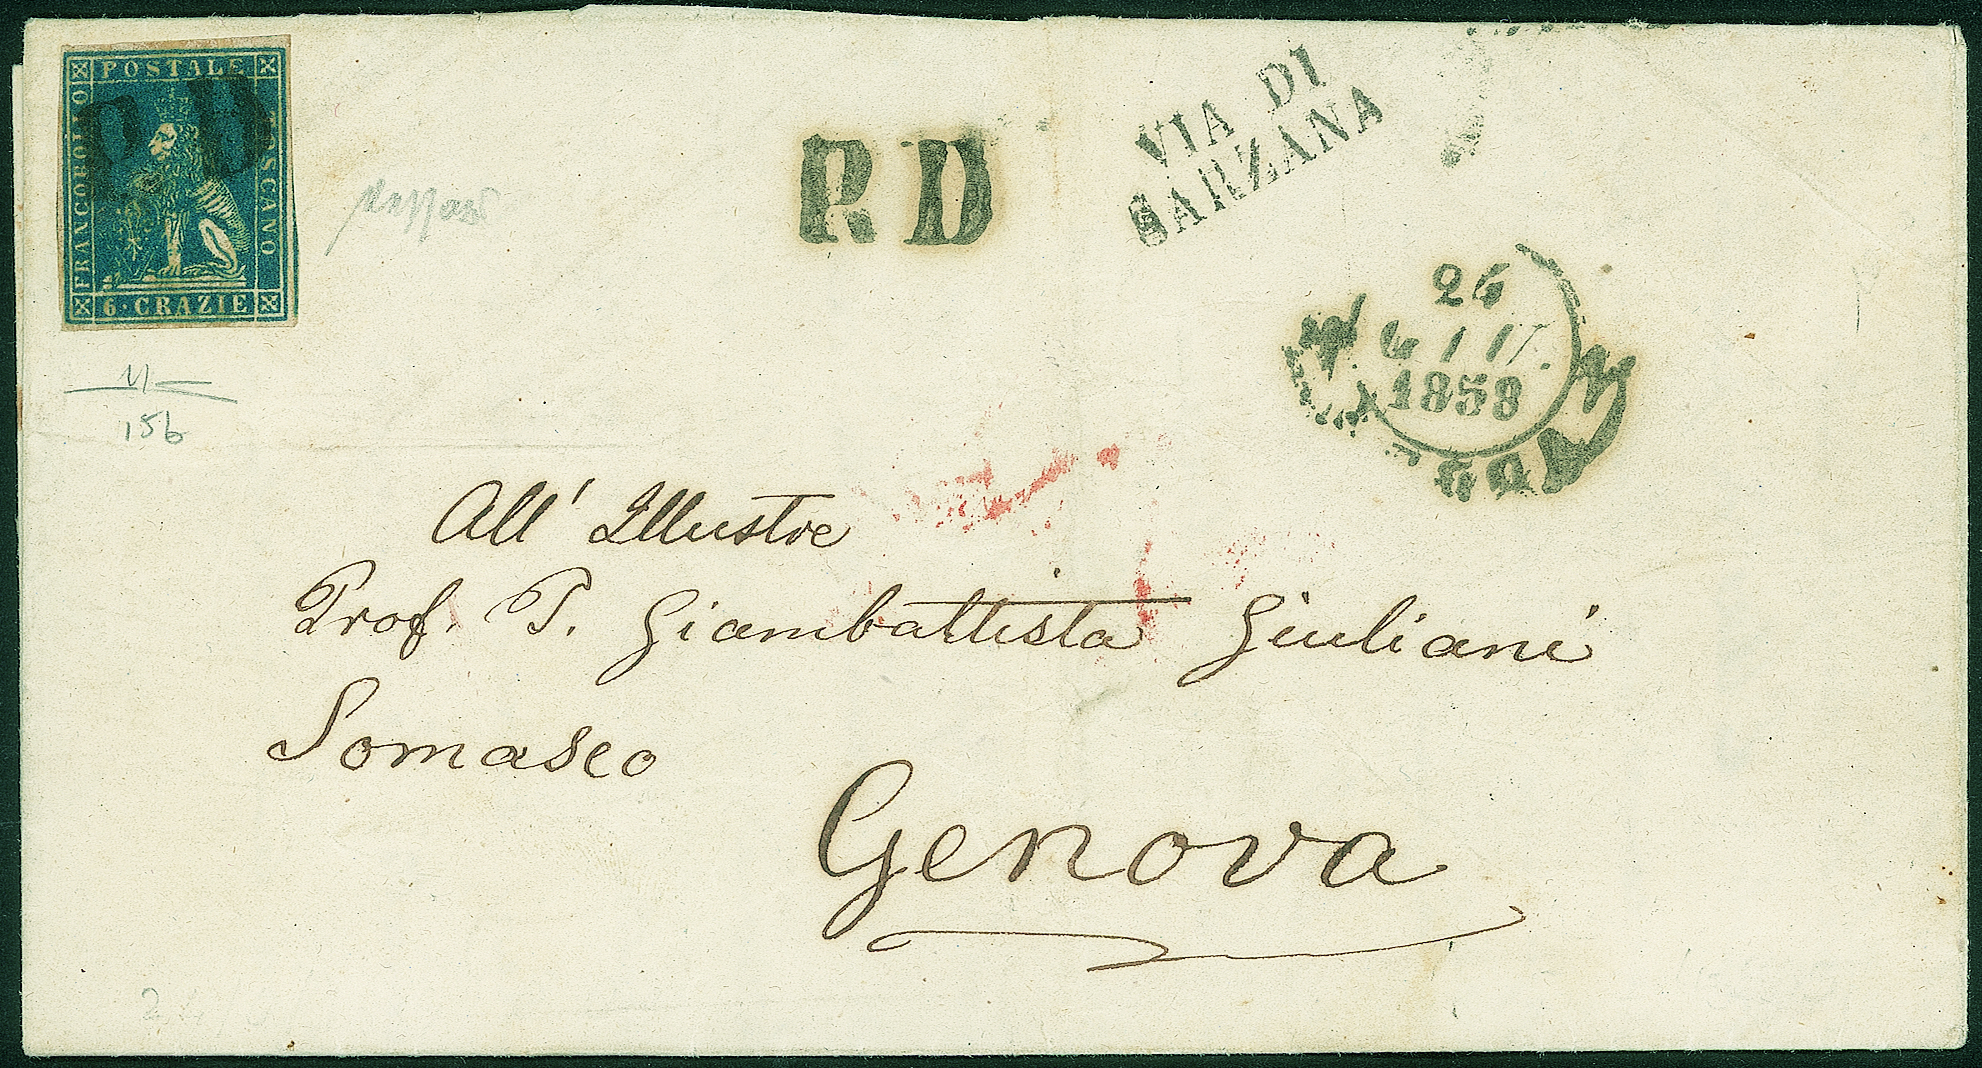 POSTALE
FRANCOBOLLO
TOSCANO
6 · CRAZIE
P. D
P. D
VIA DI
SARZANA
26
GIU.
1858
15b
All' Illustre
Prof. P. Giambattista Giuliani
Somasco
Genova